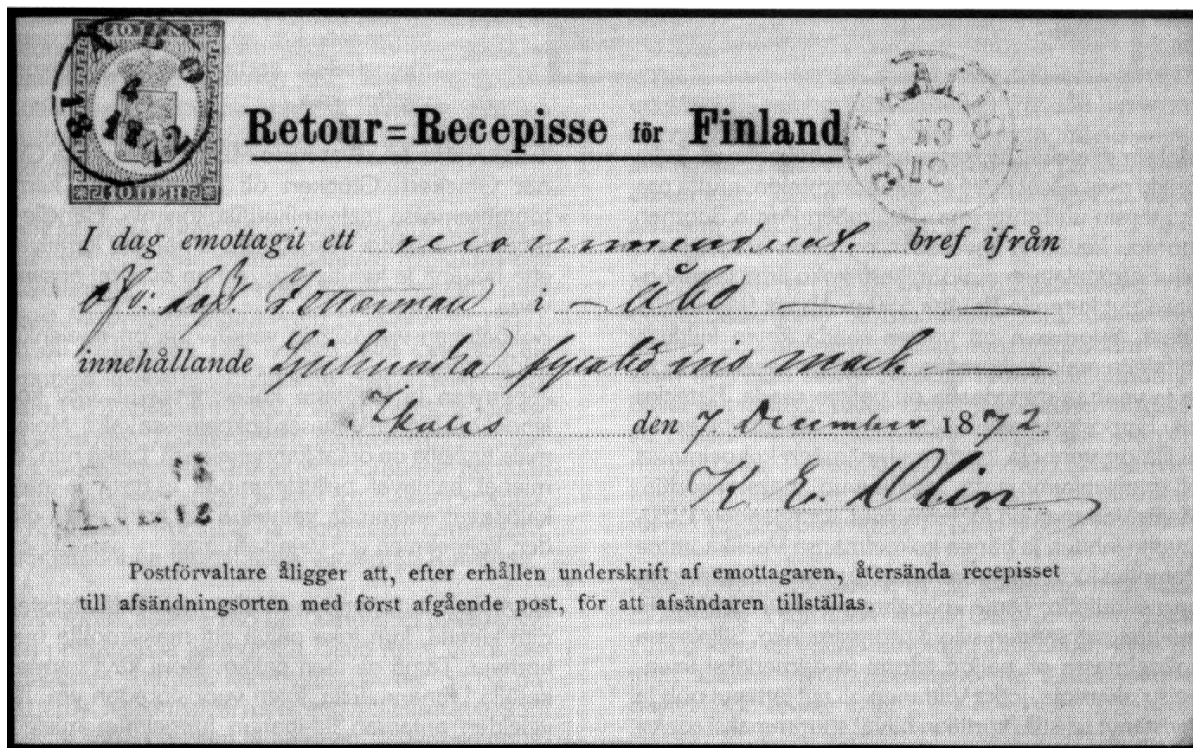 10 PEN
Retour=Recepisse för Finland
10 ПЕН
I dag emottagit ett recommenderat. bref ifrån
Zetterman i — Åbo —
innehållande Sjuhundra fyratio nio mark —
Ikalis den 7 December 1872.
K. E. Olin
12
Postförvaltare åligger att, efter erhållen underskrift af emottagaren, återsända recepisset
till afsändningsorten med först afgående post, för att afsändaren tillställas.